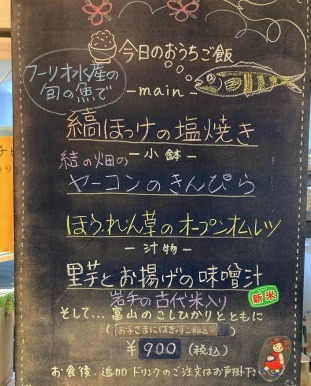 今日のおうちご飯
フーリオ水産の
旬の魚で
-main-
縞ほっけの塩焼き
結の畑の
-小鉢-
ヤーコンのきんぴら
ほうれん草のオープンオムレツ
-汁物-
里芋とお揚げの味噌汁
岩手の古代米入り
新米
そして…富山のこしひかりとともに
¥900(税込)
お食後、追加ドリンクのご注文はお声掛け下